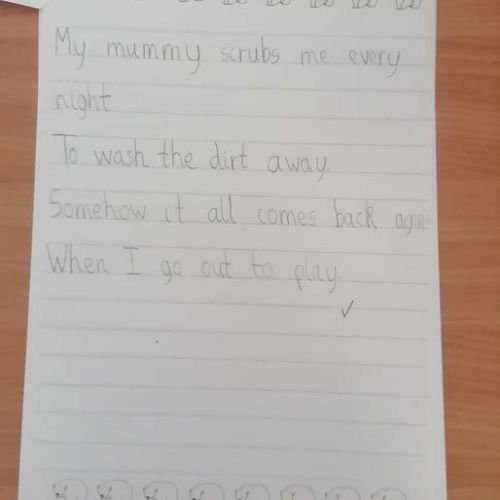 My mummy scrubs me every
night
To wash the dirt away.
Somehow it all comes back
When I go out to play.